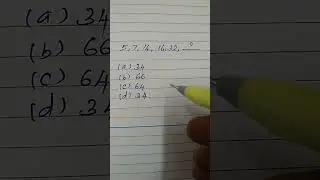 5, 7, 14, 16, 32, ?
(a) 34
(b) 66
(c) 64
(d) 34
(a) 34
(b) 66
(c) 64
(d) 34